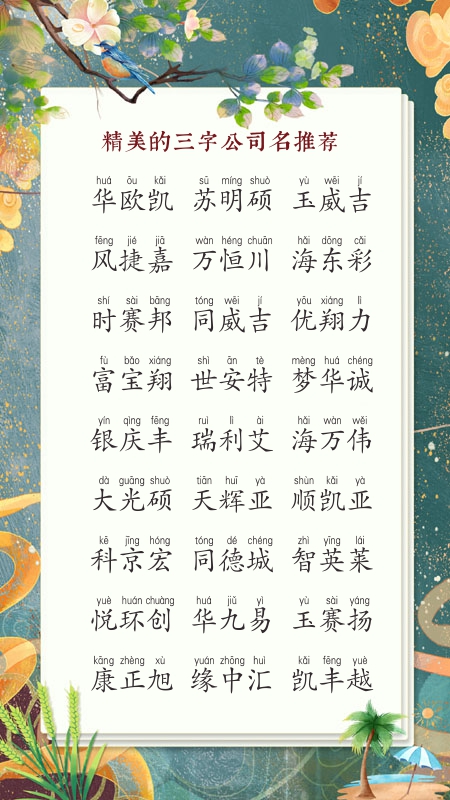 精美的三字公司名推荐
huá ōu kǎi sū míng shuò yù wēi jí
华欧凯 苏明硕 玉威吉
fēng jié jiā wàn héng chuān hǎi dōng cǎi
风捷嘉 万恒川 海东彩
shí sài bāng tóng wēi jí yōu xiáng lì
时赛邦 同威吉 优翔力
fù bǎo xiáng shì ān tè mèng huá chéng
富宝翔 世安特 梦华诚
yín qìng fēng ruì lì ài hǎi wàn wěi
银庆丰 瑞利艾 海万伟
dà guāng shuò tiān huī yà shùn kǎi yà
大光硕 天辉亚 顺凯亚
kē jīng hóng tóng dé chéng zhì yīng lái
科京宏 同德城 智英莱
yuè huán chuàng huá jiǔ yì yù sài yáng
悦环创 华九易 玉赛扬
kāng zhèng xù yuán zhōng huì kǎi fēng yuè
康正旭 缘中汇 凯丰越